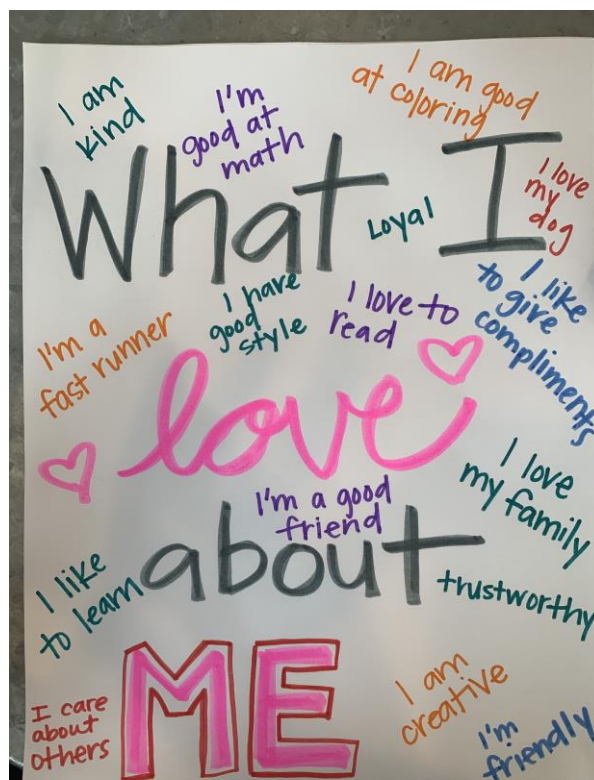 I am
kind
I'm
good at
math
I am good
at coloring
What I
Loyal
I love
my
dog
I like
to give
compliments
I'm a
fast runner
I have
good
style
I love to
read
love
I'm a good
friend
I love
my family
about
I like
to learn
trustworthy
ME
I care
about
others
I am
creative
I'm
friendly